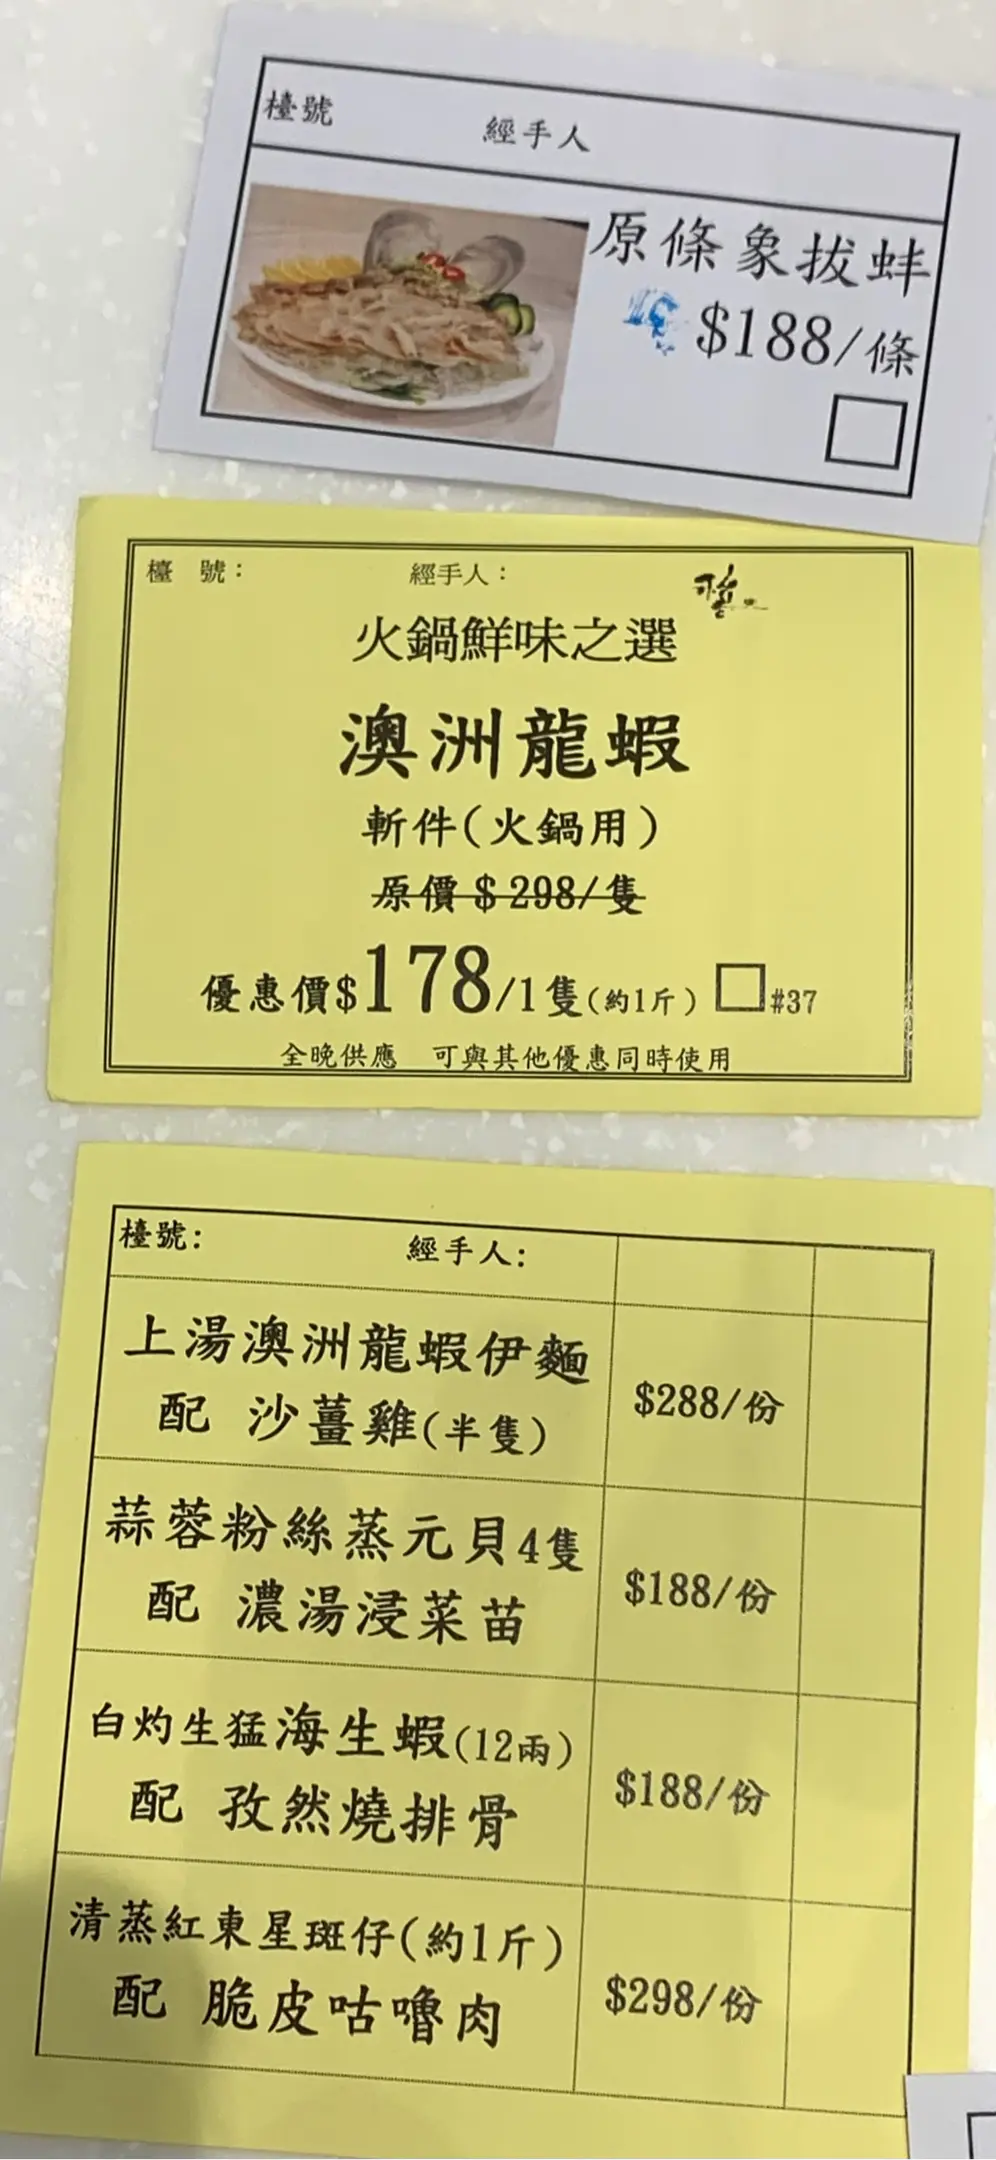 檯號 經手人
原條象拔蚌
$188/條
檯 號： 經手人：
火鍋鮮味之選
澳洲龍蝦
斬件(火鍋用)
原價$298/隻
優惠價$178/1隻(約1斤) #37
全晚供應 可與其他優惠同時使用
檯號: 經手人:
上湯澳洲龍蝦伊麵
配 沙薑雞(半隻)
$288/份
蒜蓉粉絲蒸元貝4隻
配 濃湯浸菜苗
$188/份
白灼生猛海生蝦(12兩)
配 孜然燒排骨
$188/份
清蒸紅東星斑仔(約1斤)
配 脆皮咕嚕肉
$298/份